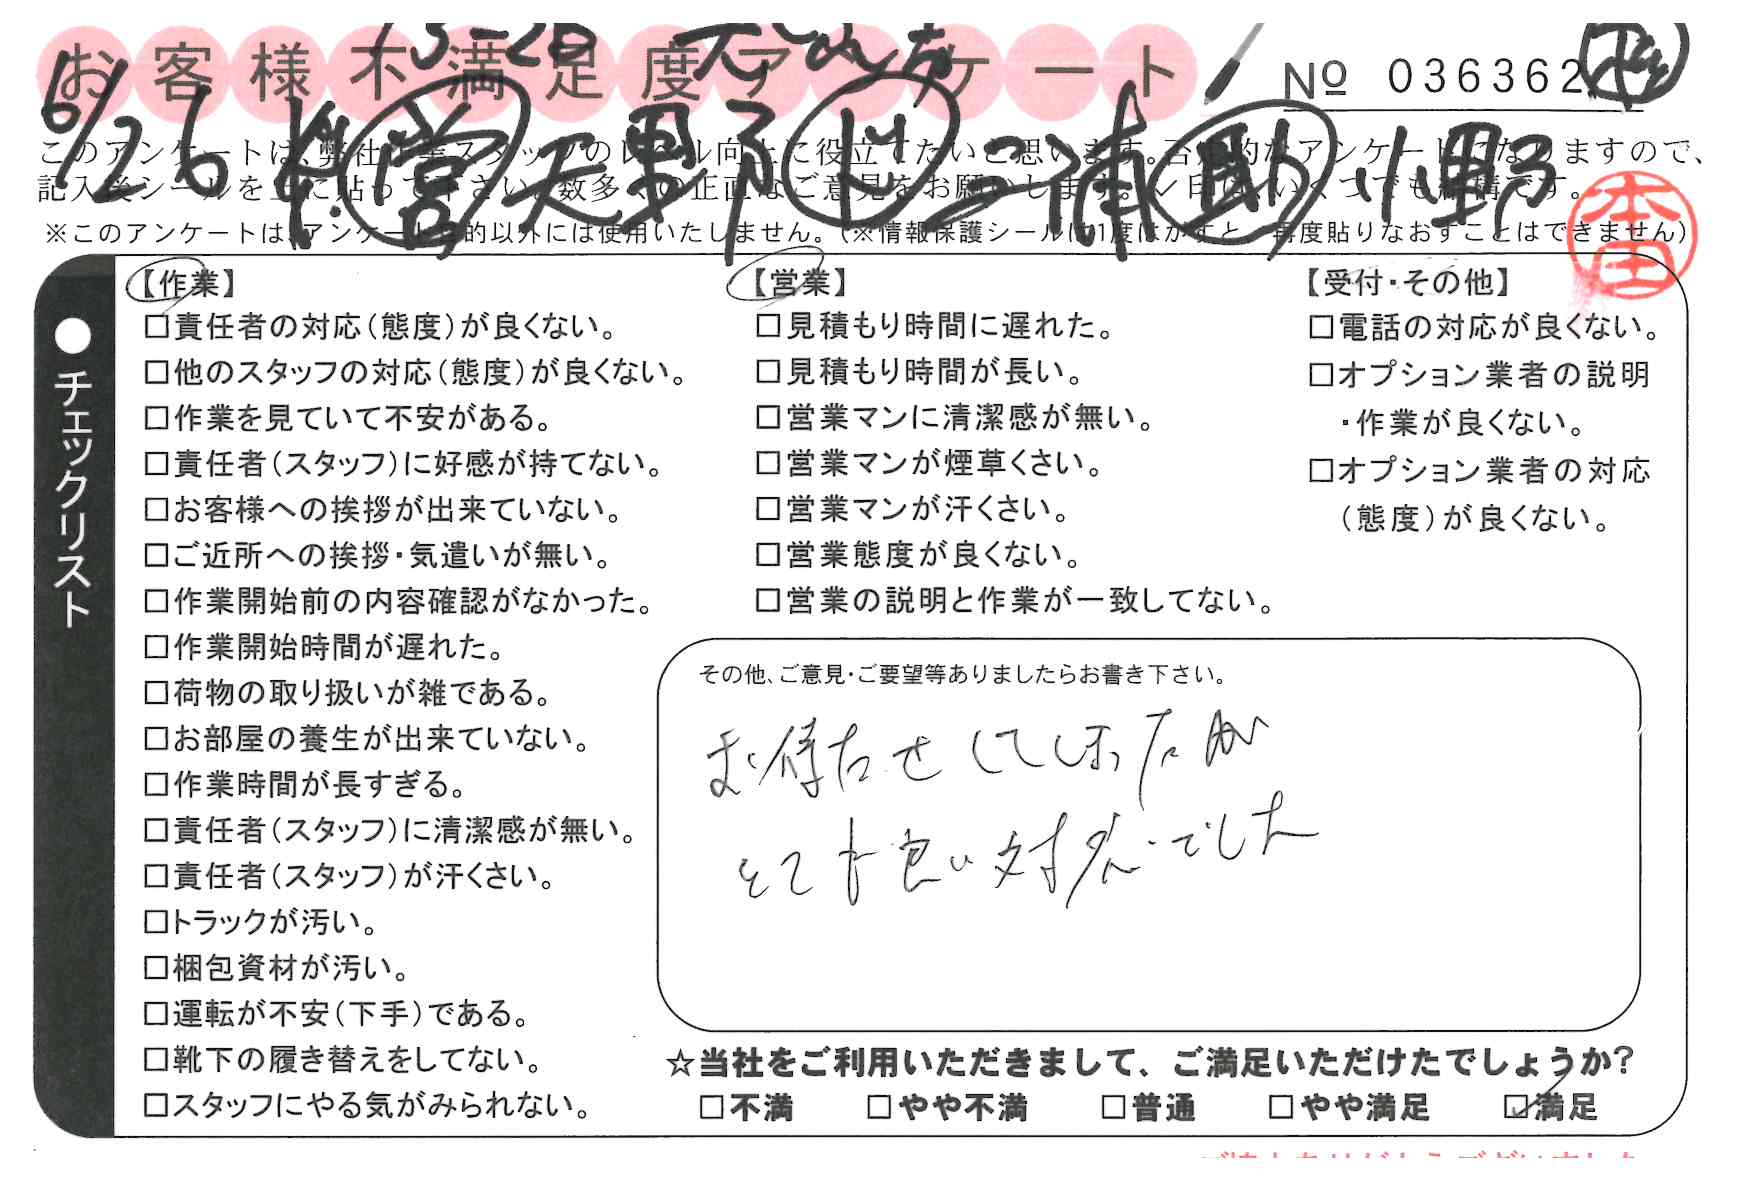 お客様不満足度アンケート
No 036362
6/26 営 天野 三浦 助 小野
このアンケートは、弊社作業スタッフのレベル向上に役立てたいと思います。否定的なアンケートになりますので、
記入後シールを上に貼って下さい。数多くの正直なご意見をお願いします。レ印は、いくつでも結構です。
※このアンケートは、アンケート目的以外には使用いたしません。(※情報保護シールは1度はがすと、再度貼りなおすことはできません)
本田
●チェックリスト
【作業】
□責任者の対応(態度)が良くない。
□他のスタッフの対応(態度)が良くない。
□作業を見ていて不安がある。
□責任者(スタッフ)に好感が持てない。
□お客様への挨拶が出来ていない。
□ご近所への挨拶・気遣いが無い。
□作業開始前の内容確認がなかった。
□作業開始時間が遅れた。
□荷物の取り扱いが雑である。
□お部屋の養生が出来ていない。
□作業時間が長すぎる。
□責任者(スタッフ)に清潔感が無い。
□責任者(スタッフ)が汗くさい。
□トラックが汚い。
□梱包資材が汚い。
□運転が不安(下手)である。
□靴下の履き替えをしてない。
□スタッフにやる気がみられない。
【営業】
□見積もり時間に遅れた。
□見積もり時間が長い。
□営業マンに清潔感が無い。
□営業マンが煙草くさい。
□営業マンが汗くさい。
□営業態度が良くない。
□営業の説明と作業が一致してない。
【受付・その他】
□電話の対応が良くない。
□オプション業者の説明
・作業が良くない。
□オプション業者の対応
(態度)が良くない。
その他、ご意見・ご要望等ありましたらお書き下さい。
お待たせしてしまったが
とても良い対応でした
☆当社をご利用いただきまして、ご満足いただけたでしょうか?
□不満 □やや不満 □普通 □やや満足 ☑満足